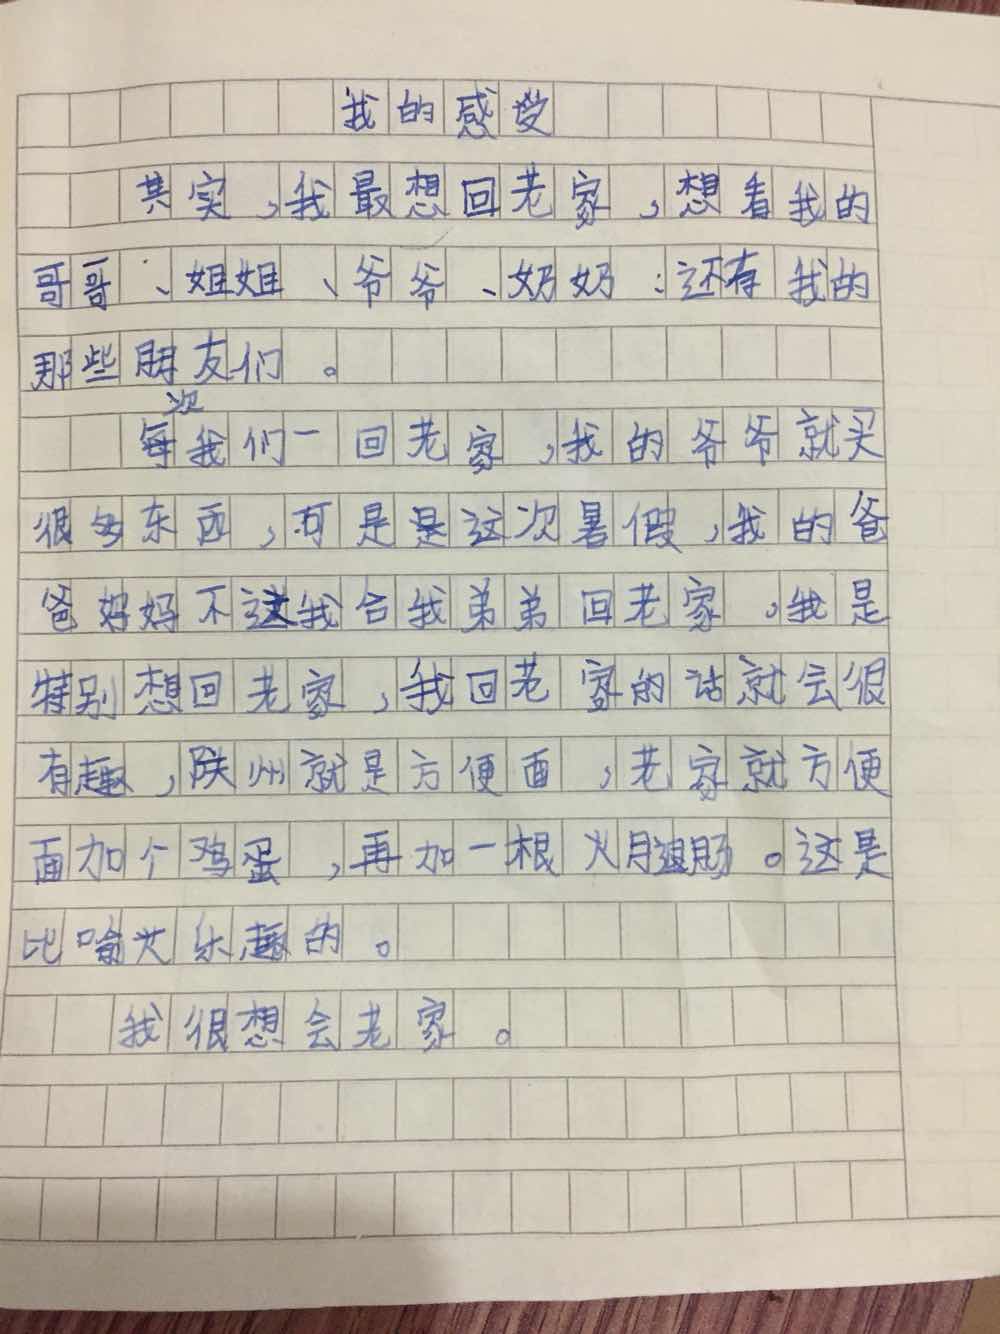 我的感受
其实,我最想回老家,想看我的
哥哥、姐姐、爷爷、奶奶:还有我的
那些朋友们。
每次我们一回老家,我的爷爷就买
很多东西,可是是这次暑假,我的爸
爸妈妈不让我合我弟弟回老家,我是
特别想回老家,我回老家的话就会很
有趣,陕州就是方便面,老家就方便
面加个鸡蛋,再加一根火腿肠。这是
比喻义乐趣的。
我很想会老家。